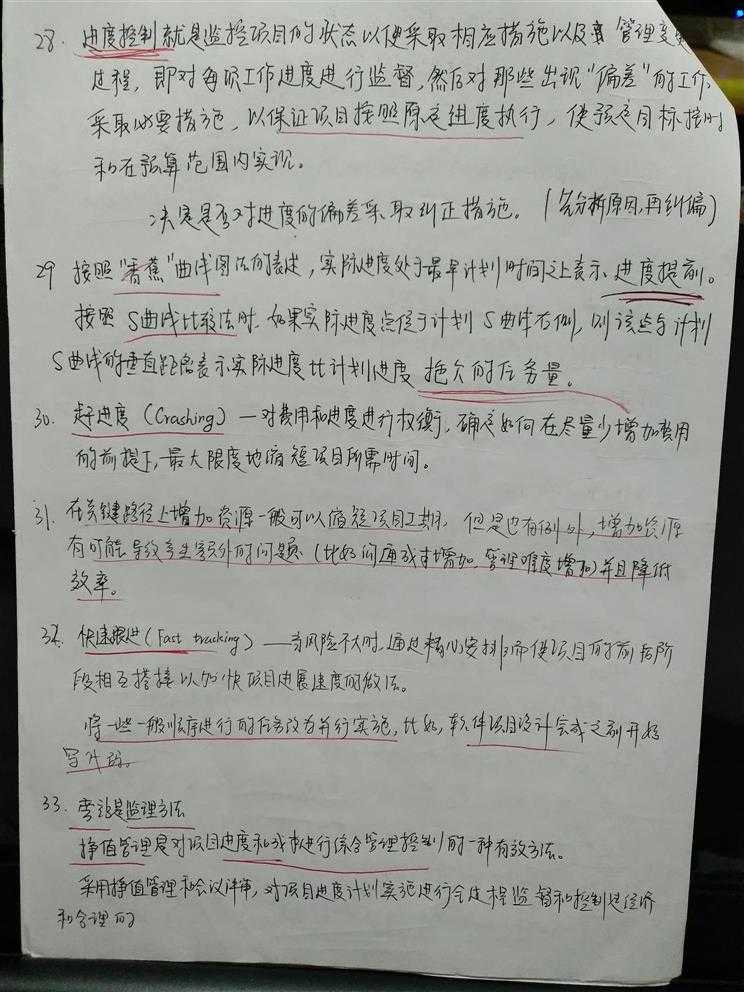 28. 进度控制就是监控项目的状态以便采取相应措施以及 管理变
过程，即对每项工作进度进行监督，然后对那些出现“偏差”的工作
采取必要措施，以保证项目按照原定进度执行，使预定目标按时
和在预算范围内实现。
决定是否对进度的偏差采取纠正措施。（先分析原因，再纠偏）
29 按照“香蕉”曲线图法的表述，实际进度处于最早计划时间之上表示进度提前。
按照S曲线比较法时，如果实际进度点位于计划S曲线右侧，则该点与计划
S曲线的垂直距离表示实际进度比计划进度拖欠的任务量。
30. 赶进度（Crashing）—对费用和进度进行权衡，确定如何在尽量少增加费用
的前提下，最大限度地缩短项目所需时间。
31. 在关键路径上增加资源一般可以缩短项目工期，但是也有例外，增加资源
有可能导致产生额外的问题（比如沟通成本增加，管理难度增加）并且降低
效率。
32. 快速跟进（Fast tracking）——当风险不大时，通过精心安排而使项目的前后阶
段相互搭接以加快项目进展速度的做法。
将一些一般顺序进行的任务改为并行实施，比如，软件项目设计完成之前开始
写代码。
33. 旁站是监理方法
挣值管理是对项目进度和成本进行综合管理控制的一种有效方法。
采用挣值管理和会议评审，对项目进度计划实施进行全过程监督和控制是经济
和合理的